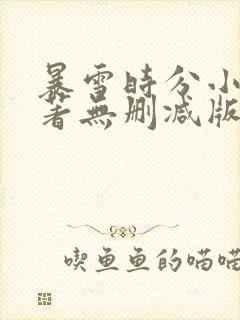 暴雪時分小
著無刪減版
喫鱼鱼的喵喵